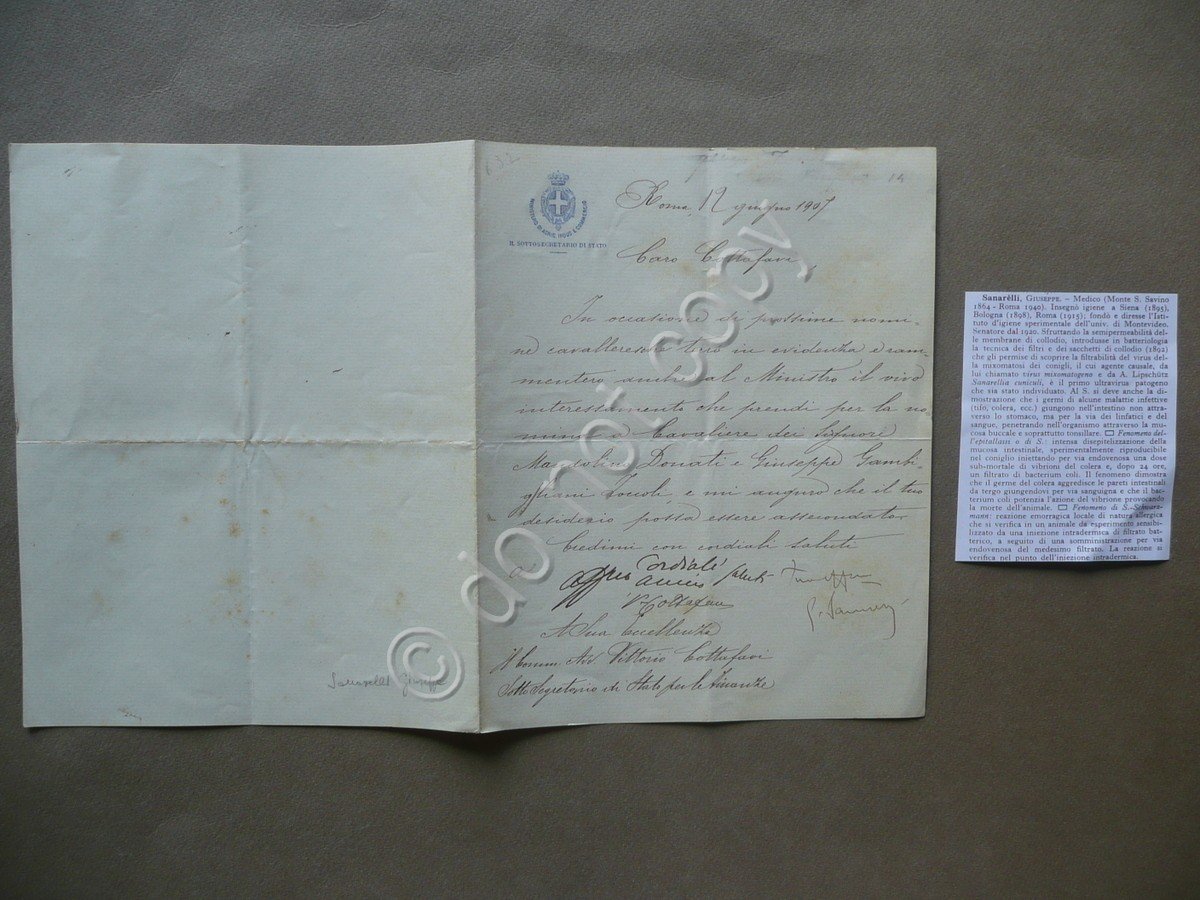 Roma, 12 giugno 1907
MINISTERO DI AGRIC. INDUS. E COMMERCIO
IL SOTTOSEGRETARIO DI STATO
Caro Cottafavi,
In occasione di prossime nomi-
ne cavalleresche terrò in evidenza e ram-
menterò anche al Ministro il vivo
interessamento che prendi per la no-
mina a Cavaliere dei Signori
Donati e Giuseppe Gambi-
gliani Zoccoli e mi auguro che il tuo
desiderio possa essere assecondato.
Credimi con cordiali saluti
cordiali saluti
amico
V Cottafavi
A Sua Eccellenza
Il Comm. Avv Vittorio Cottafavi
Sotto Segretario di Stato per le Finanze
Sanarelli Giuseppe
© do not copy
Sanarèlli, GIUSEPPE. – Medico (Monte S. Savino
1864 - Roma 1940). Insegnò igiene a Siena (1895),
Bologna (1898), Roma (1915); fondò e diresse l'Isti-
tuto d'igiene sperimentale dell'univ. di Montevideo.
Senatore dal 1920. Sfruttando la semipermeabilità del-
le membrane di collodio, introdusse in batteriologia
la tecnica dei filtri e dei sacchetti di collodio (1892)
che gli permise di scoprire la filtrabilità del virus del-
la mixomatosi dei conigli, il cui agente causale, da
lui chiamato virus mixomatogeno e da A. Lipschütz
Sanarellia cuniculi, è il primo ultravirus patogeno
che sia stato individuato. Al S. si deve anche la di-
mostrazione che i germi di alcune malattie infettive
(tifo, colera, ecc.) giungono nell'intestino non attra-
verso lo stomaco, ma per la via dei linfatici e del
sangue, penetrando nell'organismo attraverso la mu-
cosa buccale e soprattutto tonsillare. Fenomeno del-
l'epitallassi o di S.: intensa disepitelizzazione della
mucosa intestinale, sperimentalmente riproducibile
nel coniglio iniettando per via endovenosa una dose
sub-mortale di vibrioni del colera e, dopo 24 ore,
un filtrato di bacterium coli. Il fenomeno dimostra
che il germe del colera aggredisce le pareti intestinali
da tergo giungendovi per via sanguigna e che il bac-
terium coli potenzia l'azione del vibrione provocando
la morte dell'animale. Fenomeno di S.-Schwarz-
mann: reazione emorragica locale di natura allergica
che si verifica in un animale da esperimento sensibi-
lizzato da una iniezione intradermica di filtrato bat-
terico, a seguito di una somministrazione per via
endovenosa del medesimo filtrato. La reazione si
verifica nel punto dell'iniezione intradermica.